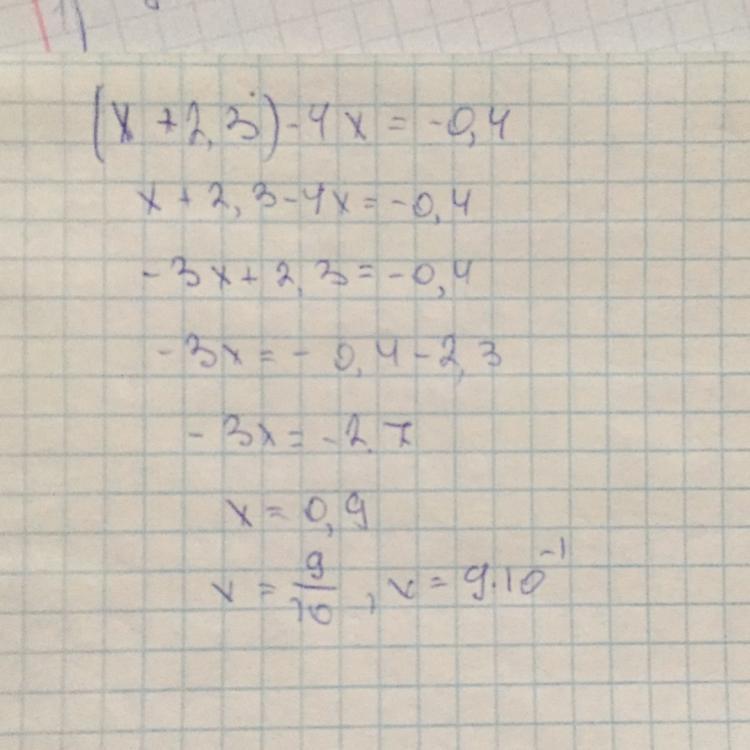 (x + 2,3) - 4x = -0,4
x + 2,3 - 4x = -0,4
-3x + 2,3 = -0,4
-3x = - 0,4 - 2,3
-3x = -2,7
x = 0,9
x = 9/10, x = 9·10⁻¹